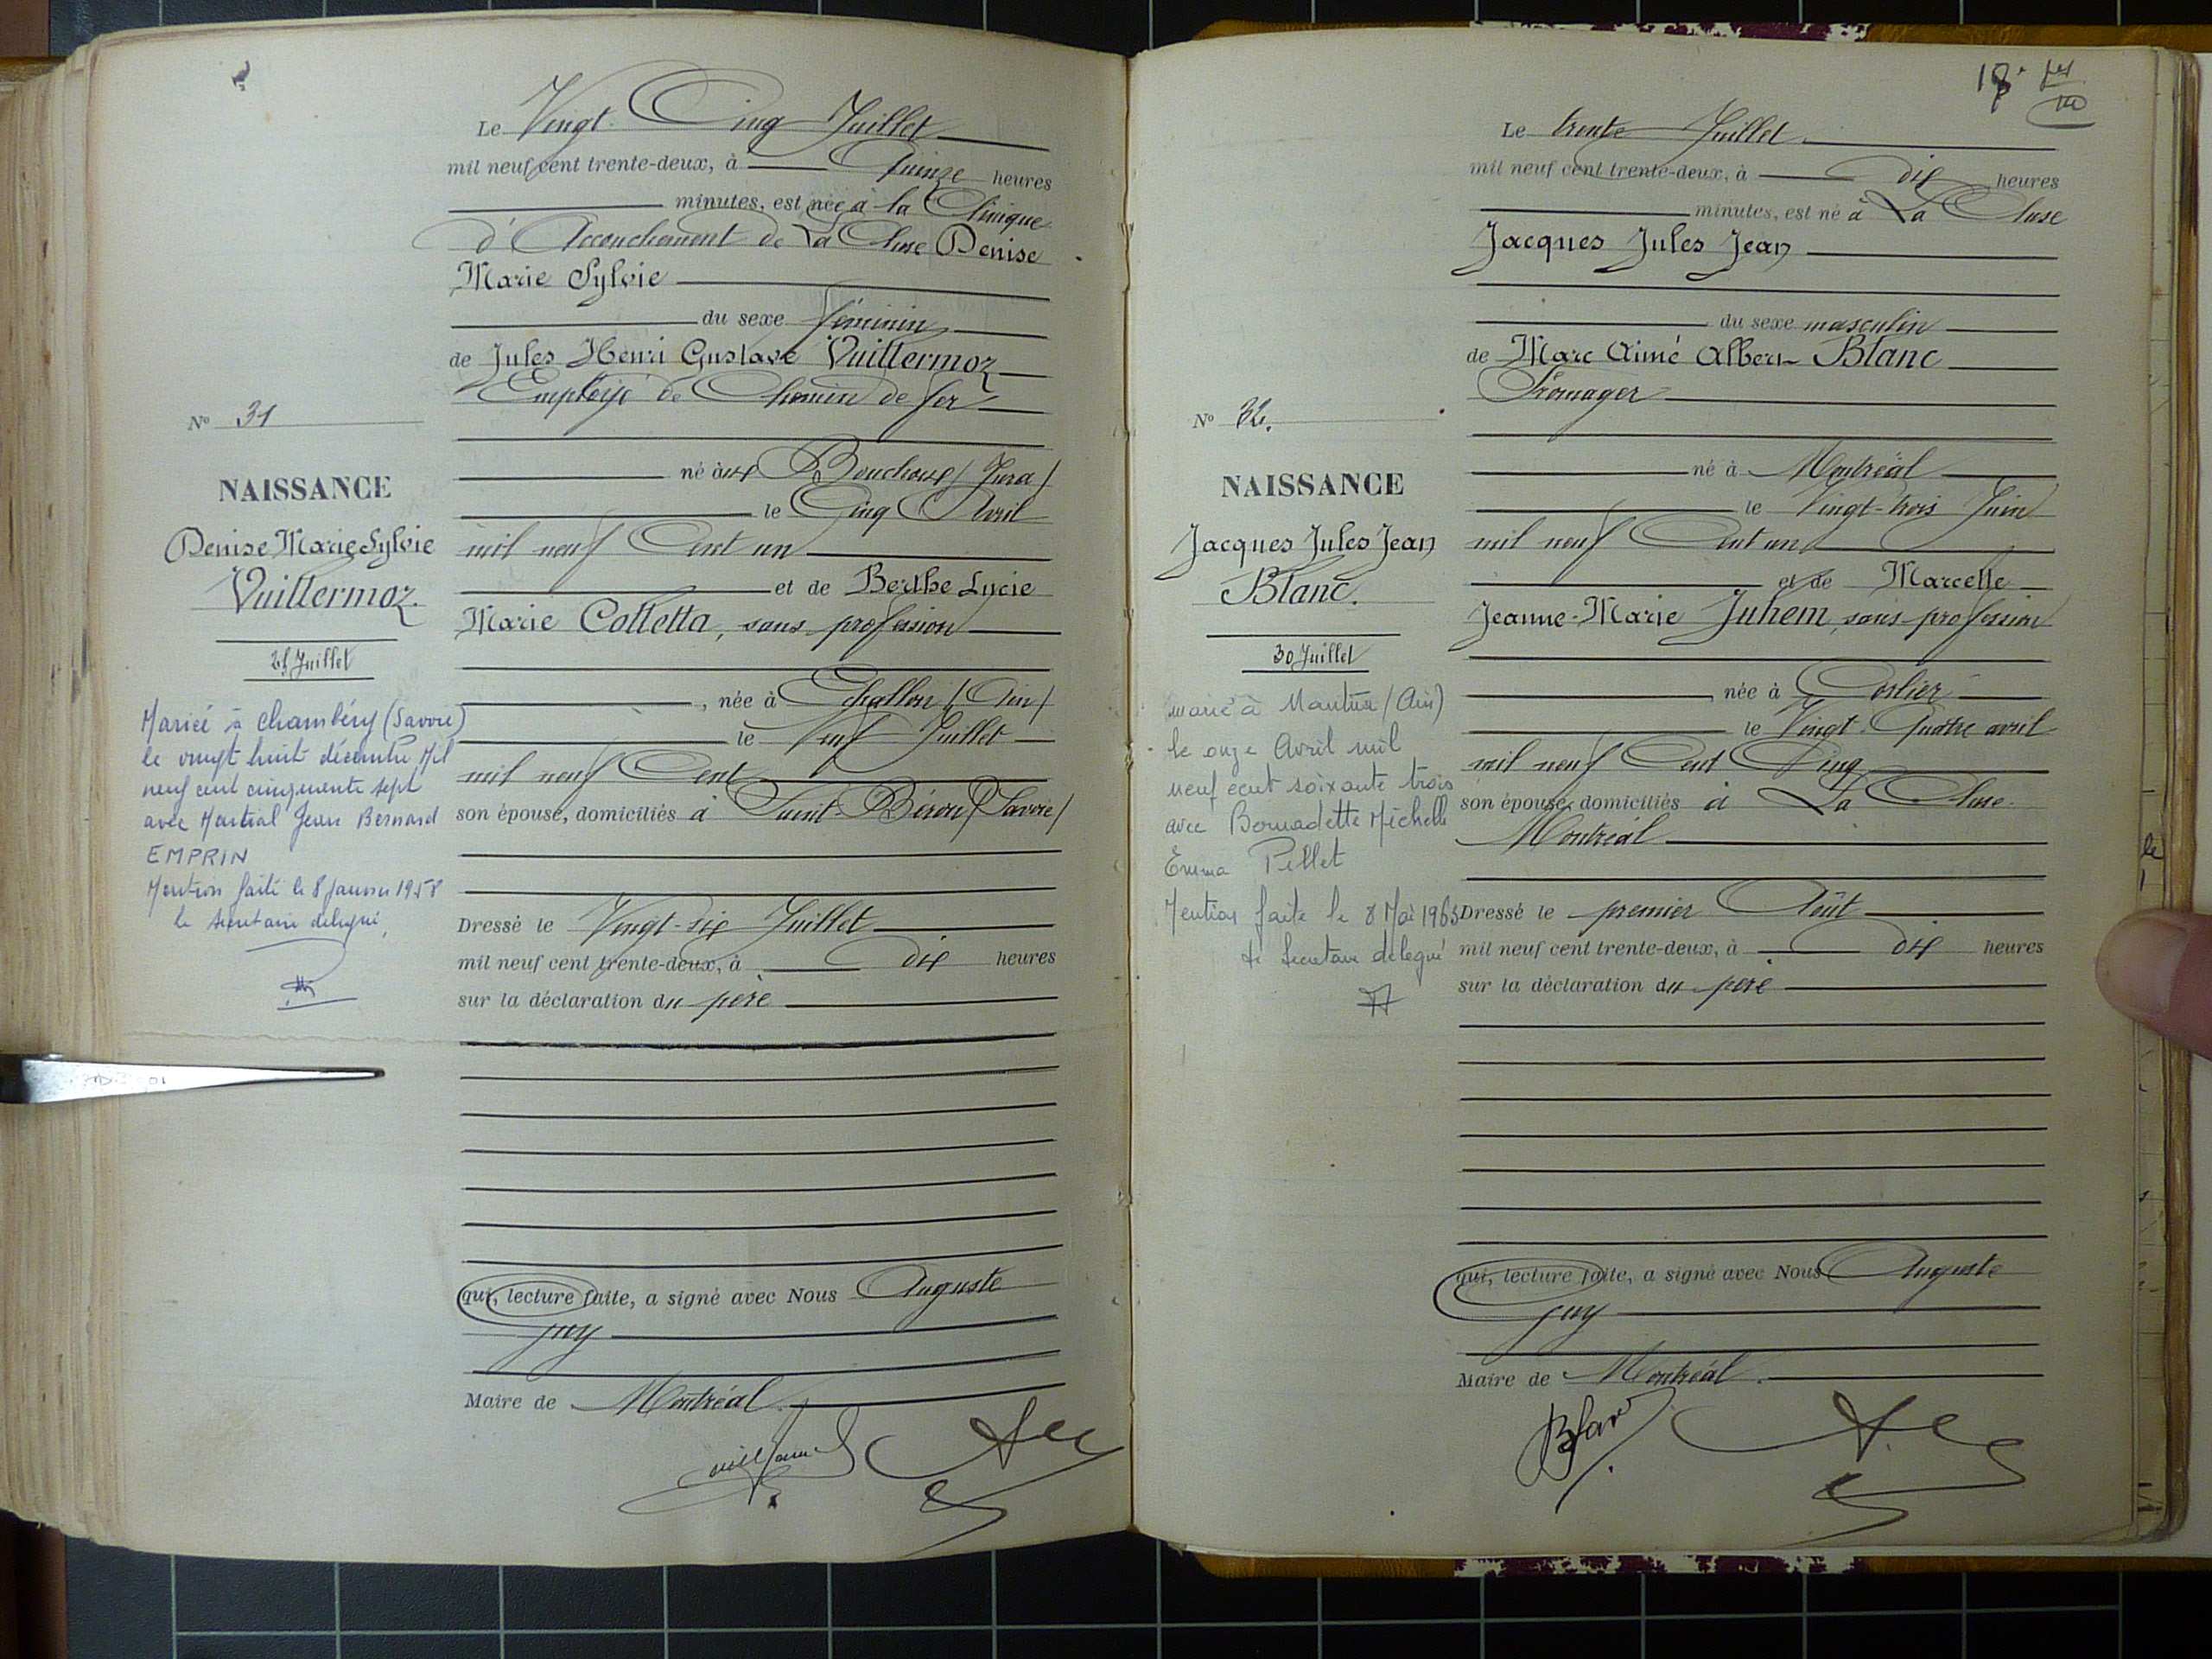 Le Vingt Cinq Juillet
mil neuf cent trente-deux, à Quinze heures
minutes, est née à la Clinique
d'Accouchement de La Cluse Denise
Marie Sylvie
du sexe féminin
de Jules Henri Gustave Vuillermoz
Employé de Chemin de fer
né aux Bouchoux (Jura)
le Cinq Avril
mil neuf Cent un
et de Berthe Lucie
Marie Colletta, sans profession
, née à Echallon (Ain)
le Neuf Juillet
mil neuf Cent
son épouse, domiciliés à Saint-Béron (Savoie)
Dressé le Vingt-six Juillet
mil neuf cent trente-deux, à dix heures
sur la déclaration du père
qui, lecture faite, a signé avec Nous Auguste
Guy
Maire de Montréal.
No 31
NAISSANCE
Denise Marie Sylvie
Vuillermoz.
25 Juillet
Mariée à Chambéry (Savoie)
le vingt huit décembre Mil
neuf cent cinquante sept
avec Martial Jean Bernard
EMPRIN
Mention faite le 8 Janvier 1958
le secrétaire délégué,
Le trente Juillet
mil neuf cent trente-deux, à dix heures
minutes, est né à La Cluse
Jacques Jules Jean
du sexe masculin
de Marc Aimé Albert Blanc
Fromager
né à Montréal
le Vingt-trois Juin
mil neuf Cent un
et de Marcelle
Jeanne-Marie Juhem, sans profession
née à Corlier
le Vingt-Quatre avril
mil neuf Cent Cinq
son épouse, domiciliés à La Cluse
Montréal
Dressé le premier Août
mil neuf cent trente-deux, à dix heures
sur la déclaration du père
qui, lecture faite, a signé avec Nous Auguste
Guy
Maire de Montréal.
Blanc
No 32.
NAISSANCE
Jacques Jules Jean
Blanc.
30 Juillet
marié à Nantua (Ain)
le onze Avril mil
neuf cent soixante trois
avec Bernadette Michelle
Emma Pellet
Mention faite le 8 Mai 1963
le Secrétaire délégué